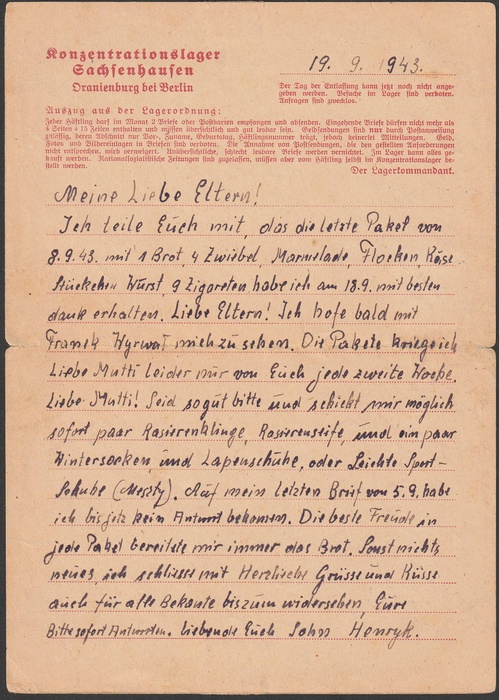 Konzentrationslager
Sachsenhausen
Oranienburg bei Berlin
19. 9. 1943.
Der Tag der Entlassung kann jetzt noch nicht ange-
geben werden. Besuche im Lager sind verboten.
Anfragen sind zwecklos.
Auszug aus der Lagerordnung:
Jeder Häftling darf im Monat 2 Briefe oder Postkarten empfangen und absenden. Eingehende Briefe dürfen nicht mehr als
4 Seiten à 15 Zeilen enthalten und müssen übersichtlich und gut lesbar sein. Geldsendungen sind nur durch Postanweisung
zulässig, deren Abschnitt nur Vor-, Zuname, Geburtstag, Häftlingsnummer trägt, jedoch keinerlei Mitteilungen. Geld,
Fotos und Bildereinlagen in Briefen sind verboten. Die Annahme von Postsendungen, die den gestellten Anforderungen
nicht entsprechen, wird verweigert. Unübersichtliche, schlecht lesbare Briefe werden vernichtet. Im Lager kann alles ge-
kauft werden. Nationalsozialistische Zeitungen sind zugelassen, müssen aber vom Häftling selbst im Konzentrationslager be-
stellt werden.
Der Lagerkommandant.
Meine Liebe Eltern!
Ich teile Euch mit, das die letzte Paket von
8.9.43. mit 1 Brot, 4 Zwiebel, Marmelade, Flocken, Käse
Stückchen Wurst, 9 Zigareten habe ich am 18.9. mit besten
dank erhalten. Liebe Eltern! Ich hofe bald mit
Franek Wyrwat mich zu sehen. Die Pakete kriege ich
Liebe Mutti leider nur von Euch jede zweite Woche.
Liebe Mutti! Seid so gut bitte und schickt mir möglich
sofort paar Rasierenklinge, Rasierenseife, und ein paar
Wintersocken und Lapenschuhe, oder Leichte Sport-
Schuhe (Meszty). Auf mein letzten Brief von 5.9. habe
ich bis jetz kein Antwort bekomen. Die beste Freude in
jede Paket bereitete mir immer das Brot. Sonst nichts
neues, ich schliesse mit Herzliche Grüsse und Küsse
auch für alle Bekante bis zum widersehen Eure
Bitte sofort Antworten. Liebende Euch Sohn Henryk.